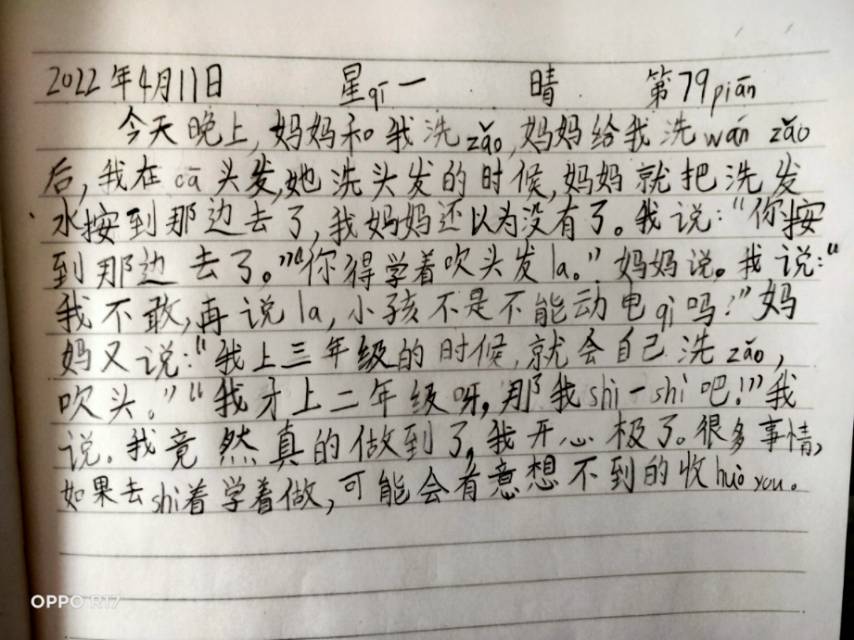 2022年4月11日 星qī一 晴 第79piān
今天晚上,妈妈和我洗zǎo,妈妈给我洗wán zǎo
后,我在cā头发,她洗头发的时候,妈妈就把洗发
水按到那边去了,我妈妈还以为没有了。我说:“你按
到那边去了。”“你得学着吹头发la。”妈妈说。我说:“
我不敢,再说la,小孩不是不能动电qì吗!”妈
妈又说:“我上三年级的时候,就会自己洗zǎo,
吹头。”“我才上二年级呀,那我shì一shì吧!”我
说。我竟然真的做到了,我开心极了。很多事情,
如果去shì着学着做,可能会有意想不到的收huò you。
OPPO R17